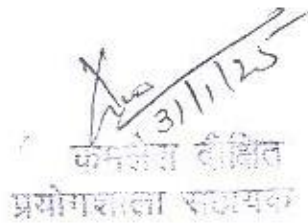 31/1/25
कमलेश दीक्षित
प्रयोगशाला सहायक